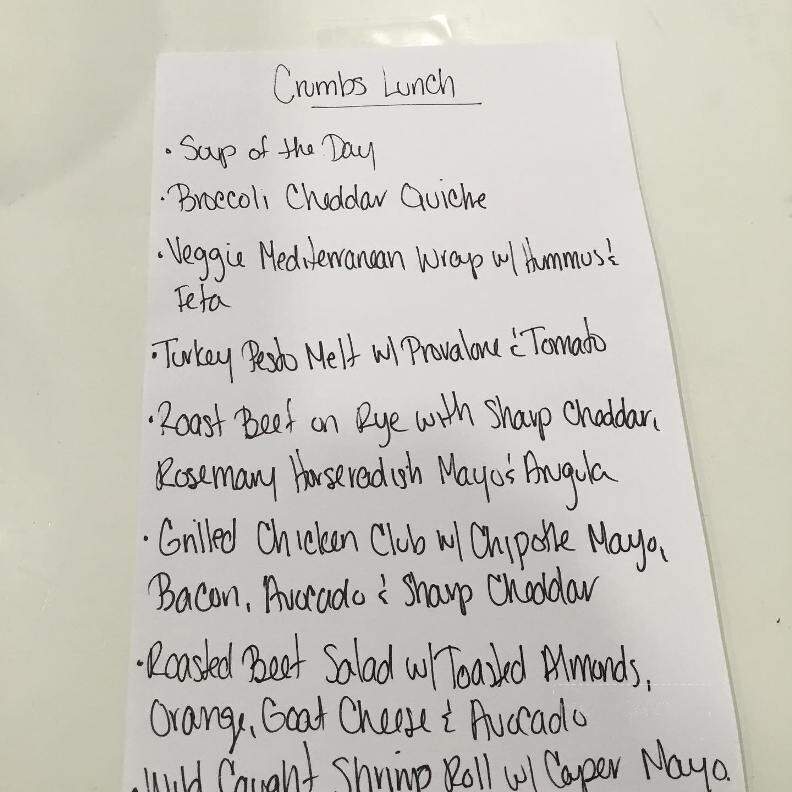 Crumbs Lunch
• Soup of the Day
• Broccoli Cheddar Quiche
• Veggie Mediterranean Wrap w/ Hummus &
Feta
• Turkey Pesto Melt w/ Provalone & Tomato
• Roast Beef on Rye with Sharp Cheddar,
Rosemary Horseradish Mayo & Arugula
• Grilled Chicken Club w/ Chipotle Mayo,
Bacon, Avocado & Sharp Cheddar
• Roasted Beet Salad w/ Toasted Almonds,
Orange, Goat Cheese & Avocado
• Wild Caught Shrimp Roll w/ Caper Mayo